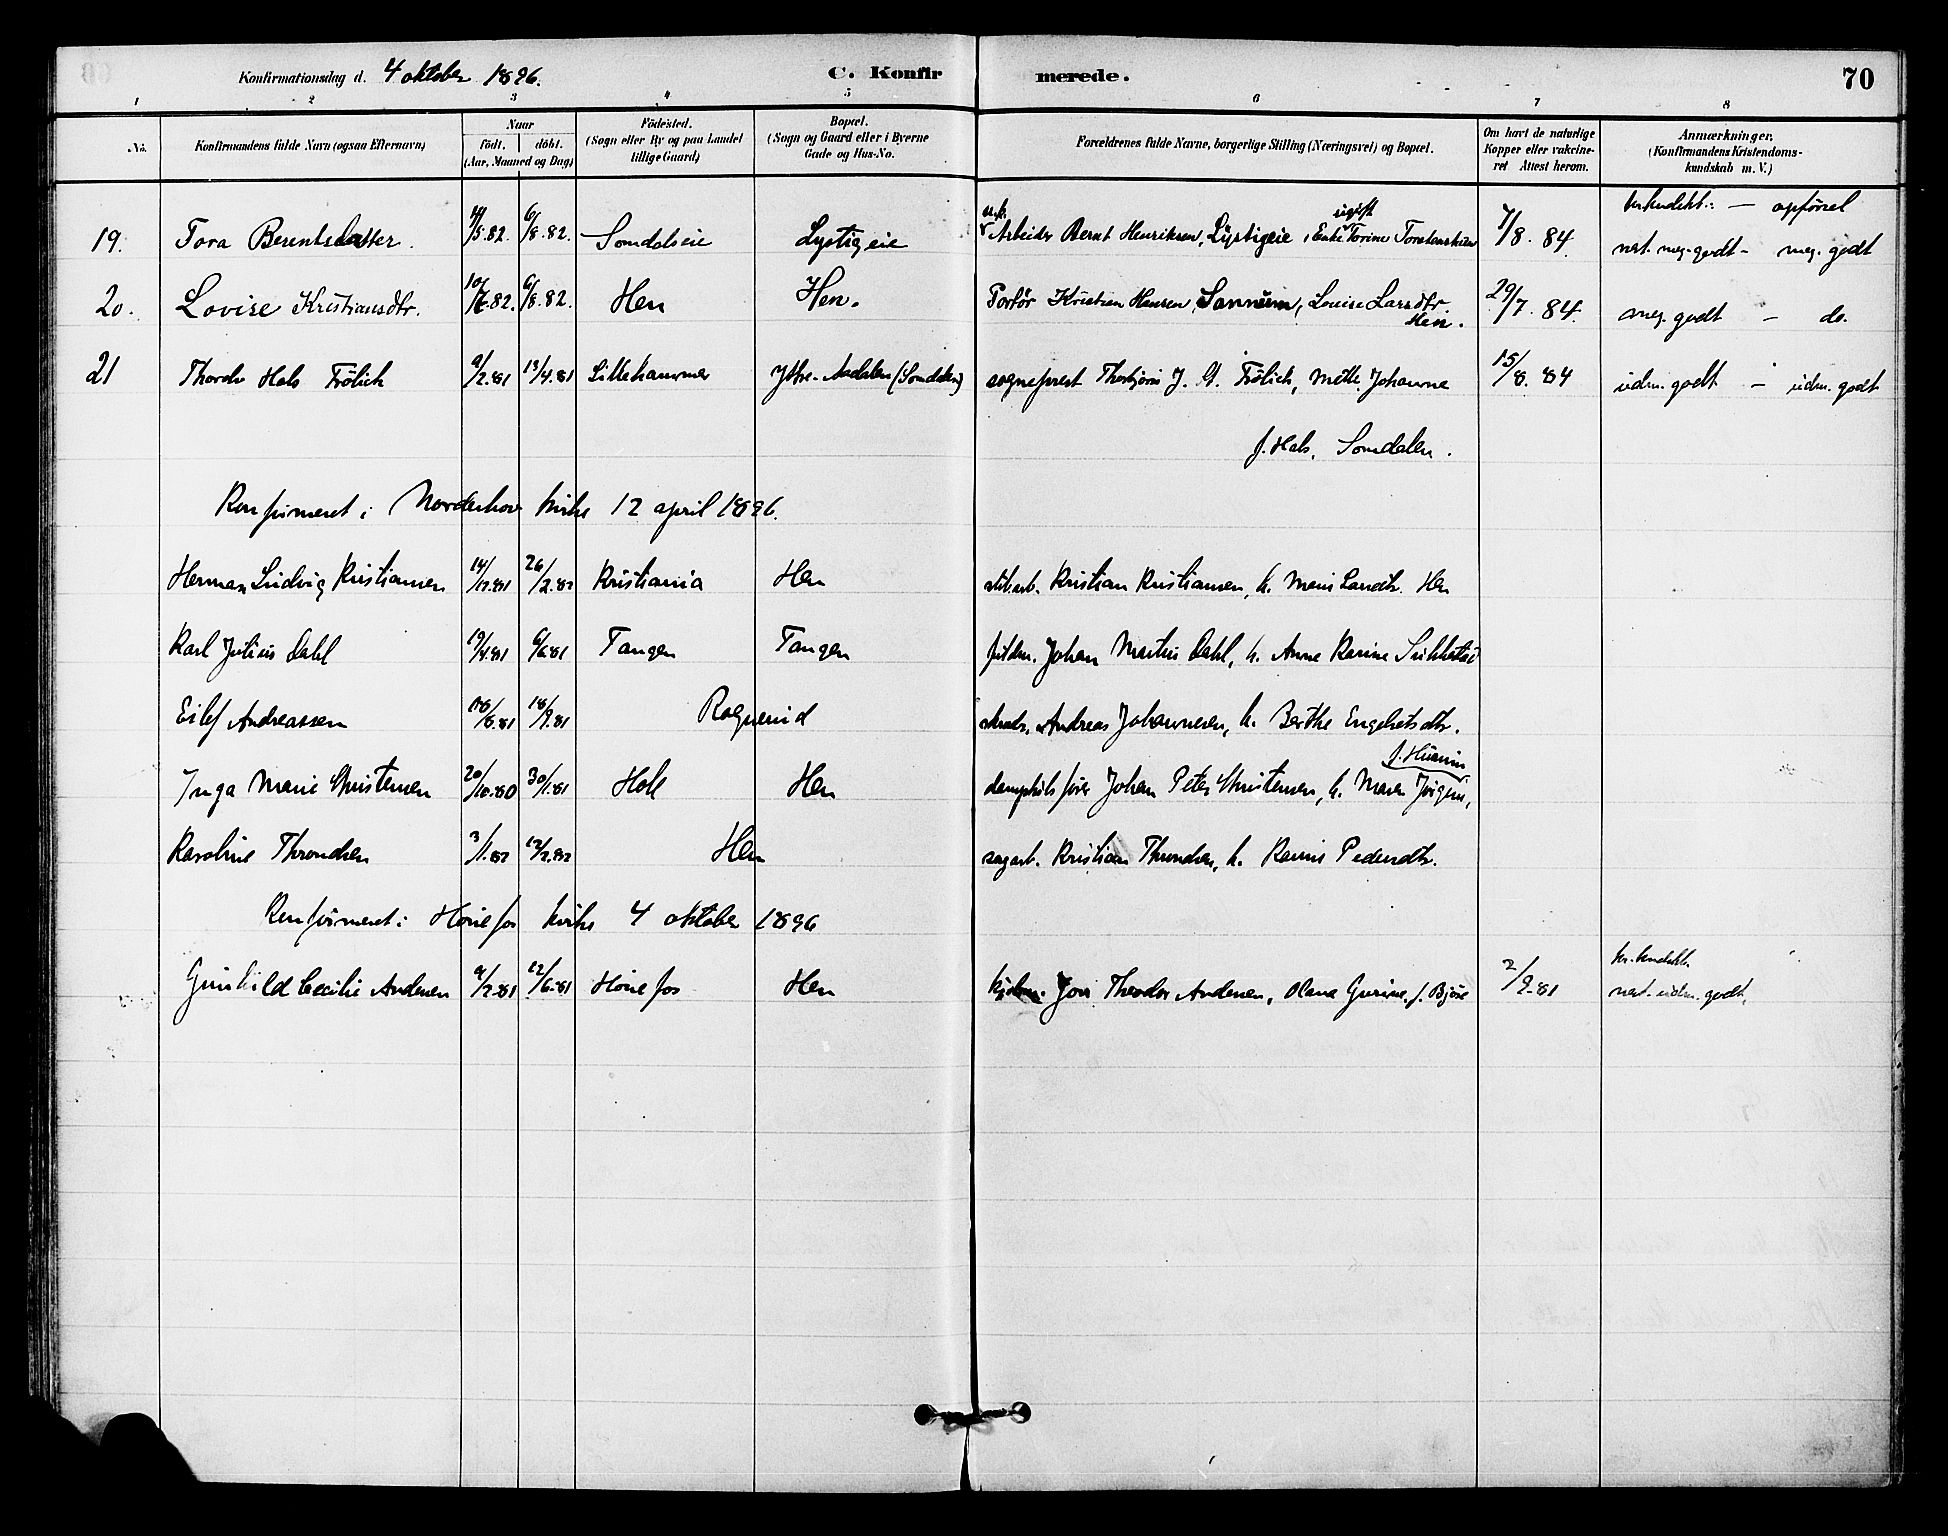 Konfirmationsdag d. 4 oktober 1896. C. Konfirmerede. 70
1 2 3 4 5 6 7 8
No. Konfirmandens fulde Navn (ogsaa Efternavn) Naar födt. döbt. (Aar, Maaned og Dag) Födested. (Sogn eller By og paa Landet tillige Gaard) Bopæl. (Sogn og Gaard eller i Byerne Gade og Hus-No. Forældrenes fulde Navne, borgerlige Stilling (Næringsvei) og Bopæl. Om havt de naturlige Kopper eller vakcineret Attest herom. Anmærkninger, (Konfirmandens Kristendomskundskab m. V.)
kr.kundsk.: — opførsel
19. Tora Berntsdatter. 14/5.82. 6/8.82. Somdalseie Lystigeie u.k. Arbeider Bernt Henriksen, Lystigeie, ugift Enke Torine Torstensdatter 7/8. 84. næst. meg. godt - meg. godt
20. Lovise Kristiansdtr. 10/6.82. 6/8.82. Hen Hen. Kristian Hansen, Sannum, Lovise Larsdtr. Hen. 29/7. 84. meg. godt — do.
21 Thordv Hals Frölich 9/2.81 13/4.81 Lillehammer Ytre-Aadalen (Somdalen) sogneprest Thorbjørn J. G. Frölich, Mette Johanne 15/8. 84 udm. godt — udm. godt
f. Hals, Somdalen.
Konfirmeret i Norderhov kirke 12 april 1896.
Herman Ludvig Kristiansen 14/12.81 26/2.82 Kristiania Hen Kristian Kristiansen, h. Maris Hen
Karl Julius Dahl 19/4.81 6/6.81 Tangen Tangen Johan Martin Dahl, h. Anne Karine
Eilef Andreassen 18/8.81 18/9.81 Rognerud Andreas Johannesen, h. Berthe Engebretsdtr.
Inga Marie Christensen 20/10.80 30/1.81 Hole Hen dampskibsfører Johan Peter Christensen, h. Maren Jörgine, f.
Karoline Throndsen 3/1.82 12/2.82 Hen sagarb. Kristian Throndsen, h. Karine Pedersdtr.
Konfirmeret i Hönefos kirke 4 oktober 1896
Gunhild Cecilie Andersen 9/2.81 12/6.81 Hönefos Hen Jon Theodor Andersen, Olava Gurine, f. Björe 2/9.81 kr.kundsk. næst. udm. godt,